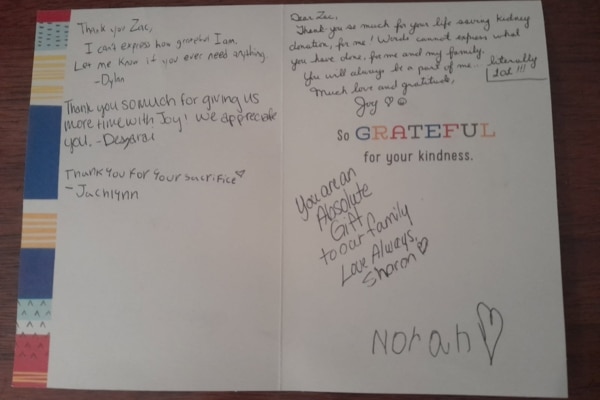 Thank you Zac,
I can't express how grateful I am.
Let me know if you ever need anything.
-Dylan
Thank you so much for giving us
more time with Joy! We appreciate
you. -
Thank you for your sacrifice♡
~Jachlynn
Dear Zac,
Thank you so much for your life saving kidney
donation, for me! Words cannot express what
you have done, for me and my family.
You will always be a part of me... literally
lol!!!
Much love and gratitude,
Joy ♡ ☺
So GRATEFUL
for your kindness.
You are an
Absolute
Gift
to our family
Love Always,
Sharon ♡
Norah ♡